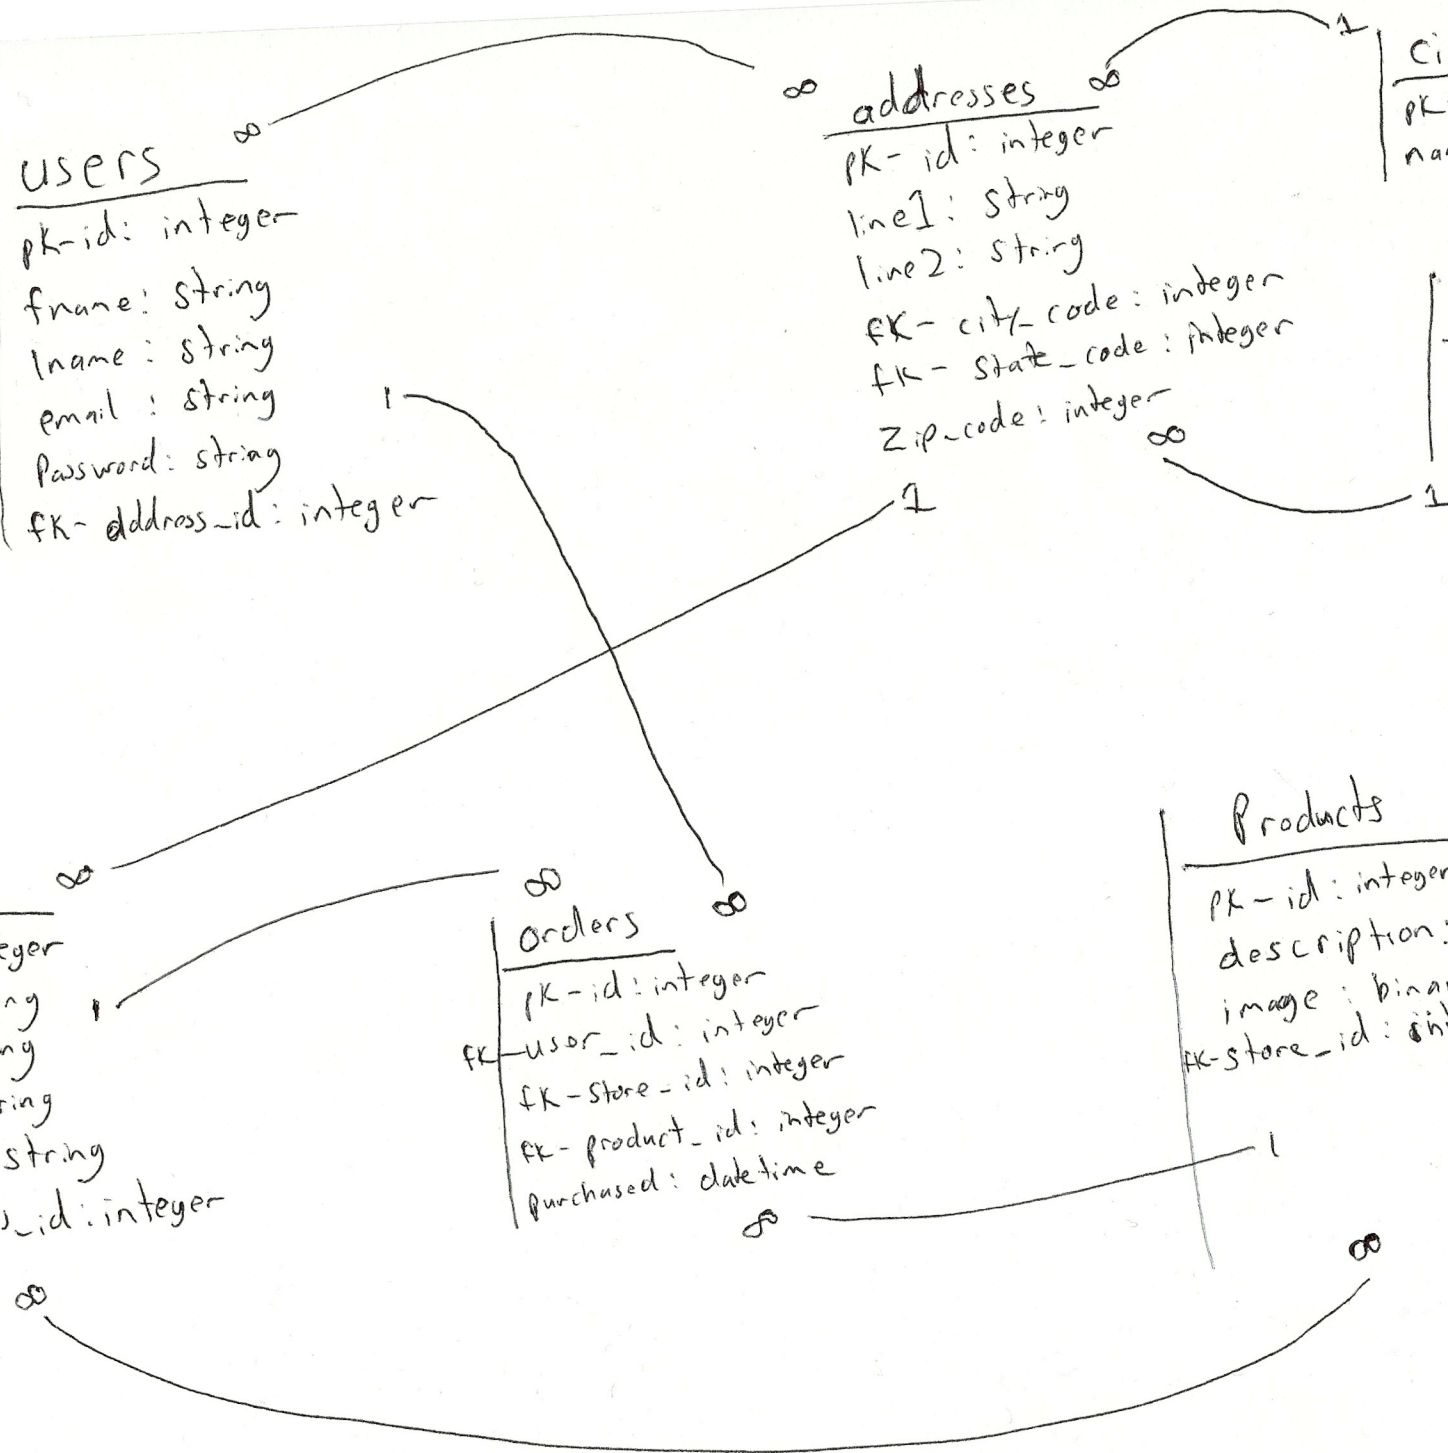 users
pk-id: integer
fname: string
lname: string
email : string
Password: string
fk- address_id: integer
∞
1
∞
addresses
∞
pk- id: integer
line1: string
line2: string
fk- city_code: integer
fk- state_code: integer
zip_code: integer
∞
1
1
ci
pk
na
1
∞
eger
ng
ng
ring
string
s_id: integer
1
∞
∞
∞
orders
pk-id: integer
fk-user_id: integer
fk-store_id: integer
fk- product_id: integer
purchased: datetime
∞
Products
pk-id: integer
description:
image: bina
fk-store_id: int
1
∞